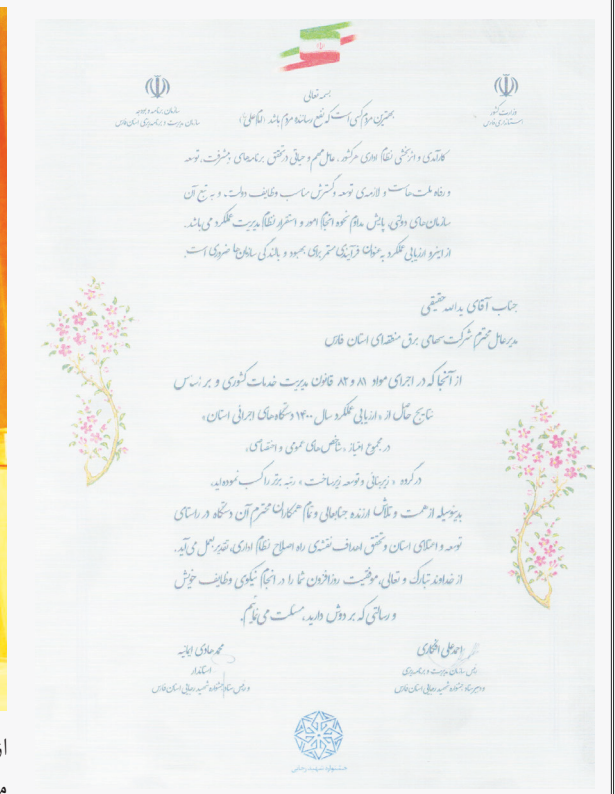 بسمه تعالی
بهترین مردم کسی است که نفع رساننده مردم باشد
وزارت کشور
استانداری فارس
سازمان برنامه و بودجه
سازمان مدیریت و برنامه‌ریزی استان فارس
کارآمدی و اثربخشی نظام اداری هر کشور، عامل مهم و حیاتی در تحقق برنامه‌های پیشرفت، توسعه
و رفاه ملت‌هاست و لازمه‌ی توسعه و گسترش مناسب وظایف دولت، و به تبع آن
سازمان‌های دولتی، پایش مداوم نحوه انجام امور و استقرار نظام مدیریت عملکرد می‌باشد.
از اینرو ارزیابی عملکرد به عنوان فرآیندی مستمر برای بهبود و بالندگی سازمان‌ها ضروری است.
جناب آقای یدالله حقیقی
مدیرعامل محترم شرکت سهامی برق منطقه‌ای استان فارس
از آنجا که در اجرای مواد ۸۱ و ۸۲ قانون مدیریت خدمات کشوری و بر اساس
نتایج حاصل از «ارزیابی عملکرد سال ۱۴۰۰ دستگاه‌های اجرائی استان»
در مجموع امتیاز، شاخص‌های عمومی و اختصاصی،
در گروه «زیربنائی و توسعه زیرساخت» رتبه برتر را کسب نموده‌اید،
بدینوسیله از همت و تلاش ارزنده جنابعالی و تمام همکاران محترم آن دستگاه در راستای
توسعه و اعتلای استان و تحقق اهداف نقشه‌ی راه اصلاح نظام اداری، تقدیر بعمل می‌آید.
از خداوند تبارک و تعالی، موفقیت روزافزون شما را در انجام نیکوی وظایف خویش
و رسالتی که بر دوش دارید، مسئلت می‌نمایم.
احمدعلی افتخاری
رئیس سازمان مدیریت و برنامه‌ریزی
و دبیر ستاد جشنواره شهید رجایی استان فارس
محمدهادی ایمانیه
استاندار
و رئیس ستاد جشنواره شهید رجایی استان فارس
جشنواره شهید رجایی